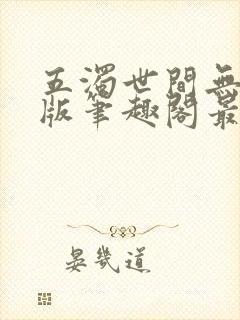 五濁世間無
版筆趣閣最
晏幾道